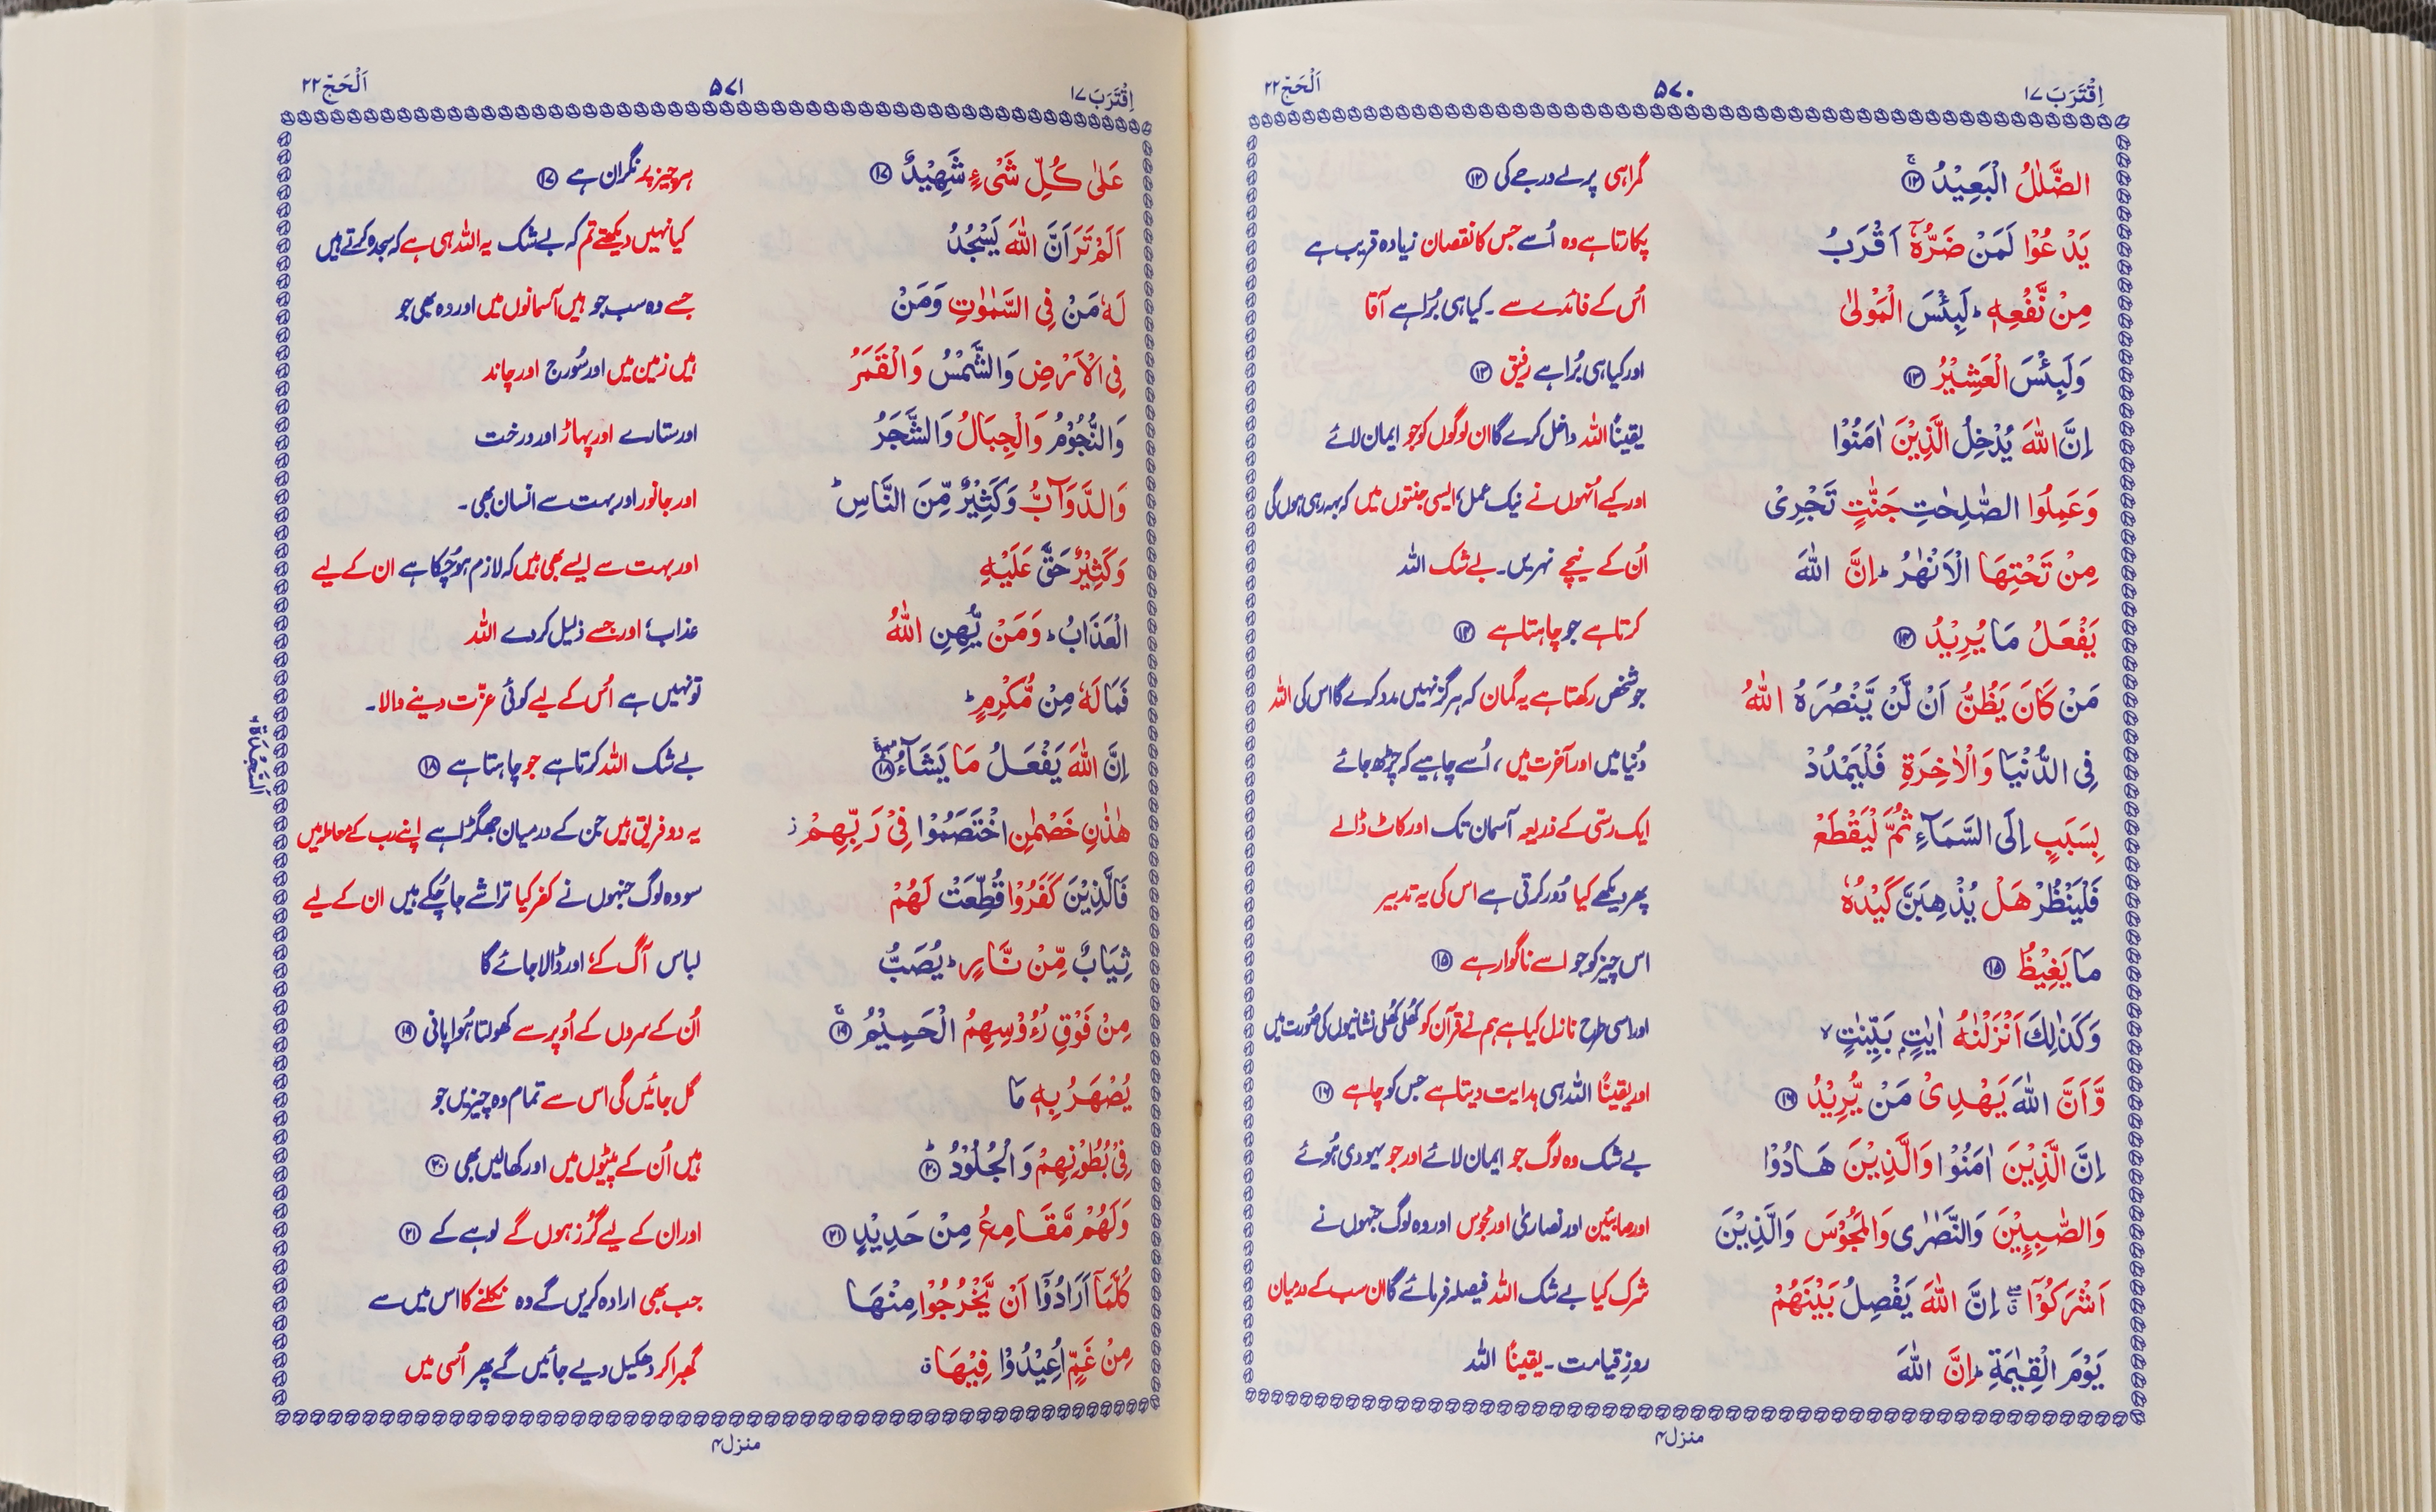 اِقْتَرَبَ ۱۷
۵۷۰
اَلْحَجّ ۲۲
الضَّلٰلُ الْبَعِیْدُ ۚ ﴿۱۲﴾ گمراہی پرلے درجے کی ﴿۱۲﴾
یَدْعُوْا لَمَنْ ضَرُّهٗۤ اَقْرَبُ پکارتا ہے وہ اُسے جس کا نقصان زیادہ قریب ہے
مِنْ نَّفْعِهٖ ؕ لَبِئْسَ الْمَوْلٰی اُس کے فائدے سے ۔ کیا ہی بُرا ہے آقا
وَلَبِئْسَ الْعَشِیْرُ ﴿۱۳﴾ اور کیا ہی بُرا ہے رفیق ﴿۱۳﴾
اِنَّ اللّٰهَ یُدْخِلُ الَّذِیْنَ اٰمَنُوْا یقینًا اللہ داخل کرے گا ان لوگوں کو جو ایمان لائے
وَعَمِلُوا الصّٰلِحٰتِ جَنّٰتٍ تَجْرِیْ اور کیے اُنہوں نے نیک عمل، ایسی جنتوں میں کہ بہہ رہی ہوں گی
مِنْ تَحْتِهَا الْاَنْهٰرُ ؕ اِنَّ اللّٰهَ اُن کے نیچے نہریں۔ بے شک اللہ
یَفْعَلُ مَا یُرِیْدُ ﴿۱۴﴾ کرتا ہے جو چاہتا ہے ﴿۱۴﴾
مَنْ كَانَ یَظُنُّ اَنْ لَّنْ یَّنْصُرَهُ اللّٰهُ جو شخص رکھتا ہے یہ گمان کہ ہرگز نہیں مدد کرے گا اس کی اللہ
فِی الدُّنْیَا وَالْاٰخِرَةِ فَلْیَمْدُدْ دُنیا میں اور آخرت میں، اُسے چاہیے کہ چڑھ جائے
بِسَبَبٍ اِلَی السَّمَآءِ ثُمَّ لْیَقْطَعْ ایک رسّی کے ذریعہ آسمان تک اور کاٹ ڈالے
فَلْیَنْظُرْ هَلْ یُذْهِبَنَّ كَیْدُهٗ پھر دیکھے کیا دُور کرتی ہے اس کی یہ تدبیر
مَا یَغِیْظُ ﴿۱۵﴾ اس چیز کو جو اسے ناگوار ہے ﴿۱۵﴾
وَكَذٰلِكَ اَنْزَلْنٰهُ اٰیٰتٍۭ بَیِّنٰتٍ ۙ اور اسی طرح نازل کیا ہے ہم نے قرآن کو کھُلی کھُلی نشانیوں کی صُورت میں
وَّاَنَّ اللّٰهَ یَهْدِیْ مَنْ یُّرِیْدُ ﴿۱۶﴾ اور یقینًا اللہ ہی ہدایت دیتا ہے جس کو چاہے ﴿۱۶﴾
اِنَّ الَّذِیْنَ اٰمَنُوْا وَالَّذِیْنَ هَادُوْا بے شک وہ لوگ جو ایمان لائے اور جو یہودی ہُوئے
وَالصّٰبِـِٕیْنَ وَالنَّصٰرٰی وَالْمَجُوْسَ وَالَّذِیْنَ اور صابئین اور نصاریٰ اور مجوس اور وہ لوگ جنہوں نے
اَشْرَكُوْۤا ۖۗ اِنَّ اللّٰهَ یَفْصِلُ بَیْنَهُمْ شرک کیا بے شک اللہ فیصلہ فرمائے گا ان سب کے درمیان
یَوْمَ الْقِیٰمَةِ ؕ اِنَّ اللّٰهَ روزِ قیامت۔ یقینًا اللہ
منزل۴
اِقْتَرَبَ ۱۷
۵۷۱
اَلْحَجّ ۲۲
عَلٰی كُلِّ شَیْءٍ شَهِیْدٌ ﴿۱۷﴾ ہر چیز پر نگران ہے ﴿۱۷﴾
اَلَمْ تَرَ اَنَّ اللّٰهَ یَسْجُدُ کیا نہیں دیکھتے تم کہ بے شک یہ اللہ ہی ہے کہ سجدہ کرتے ہیں
لَهٗ مَنْ فِی السَّمٰوٰتِ وَمَنْ جسے وہ سب جو ہیں آسمانوں میں اور وہ بھی جو
فِی الْاَرْضِ وَالشَّمْسُ وَالْقَمَرُ ہیں زمین میں اور سُورج اور چاند
وَالنُّجُوْمُ وَالْجِبَالُ وَالشَّجَرُ اور ستارے اور پہاڑ اور درخت
وَالدَّوَآبُّ وَكَثِیْرٌ مِّنَ النَّاسِ ؕ اور جانور اور بہت سے انسان بھی۔
وَكَثِیْرٌ حَقَّ عَلَیْهِ اور بہت سے ایسے بھی ہیں کہ لازم ہو چُکا ہے ان کے لیے
الْعَذَابُ ؕ وَمَنْ یُّهِنِ اللّٰهُ عذاب، اور جسے ذلیل کر دے اللہ
فَمَا لَهٗ مِنْ مُّكْرِمٍ ؕ تو نہیں ہے اُس کے لیے کوئی عزّت دینے والا۔
اِنَّ اللّٰهَ یَفْعَلُ مَا یَشَآءُ ﴿۱۸﴾ بے شک اللہ کرتا ہے جو چاہتا ہے ﴿۱۸﴾
اَلسَّجْدَة
هٰذٰنِ خَصْمٰنِ اخْتَصَمُوْا فِیْ رَبِّهِمْ ؗ یہ دو فریق ہیں جن کے درمیان جھگڑا ہے اپنے رب کے معاملہ میں
فَالَّذِیْنَ كَفَرُوْا قُطِّعَتْ لَهُمْ سو وہ لوگ جنہوں نے کفر کیا تراشے جا چُکے ہیں ان کے لیے
ثِیَابٌ مِّنْ نَّارٍ ؕ یُصَبُّ لباس آگ کے، اور ڈالا جائے گا
مِنْ فَوْقِ رُءُوْسِهِمُ الْحَمِیْمُ ۚ ﴿۱۹﴾ اُن کے سروں کے اُوپر سے کھولتا ہُوا پانی ﴿۱۹﴾
یُصْهَرُ بِهٖ مَا گل جائیں گی اس سے تمام وہ چیزیں جو
فِیْ بُطُوْنِهِمْ وَالْجُلُوْدُ ؕ ﴿۲۰﴾ ہیں اُن کے پیٹوں میں اور کھالیں بھی ﴿۲۰﴾
وَلَهُمْ مَّقَامِعُ مِنْ حَدِیْدٍ ﴿۲۱﴾ اور ان کے لیے گُرز ہوں گے لوہے کے ﴿۲۱﴾
كُلَّمَاۤ اَرَادُوْۤا اَنْ یَّخْرُجُوْا مِنْهَا جب بھی ارادہ کریں گے وہ نکلنے کا اس میں سے
مِنْ غَمٍّ اُعِیْدُوْا فِیْهَا ۗ گھبرا کر دھکیل دیے جائیں گے پھر اُسی میں
منزل۴